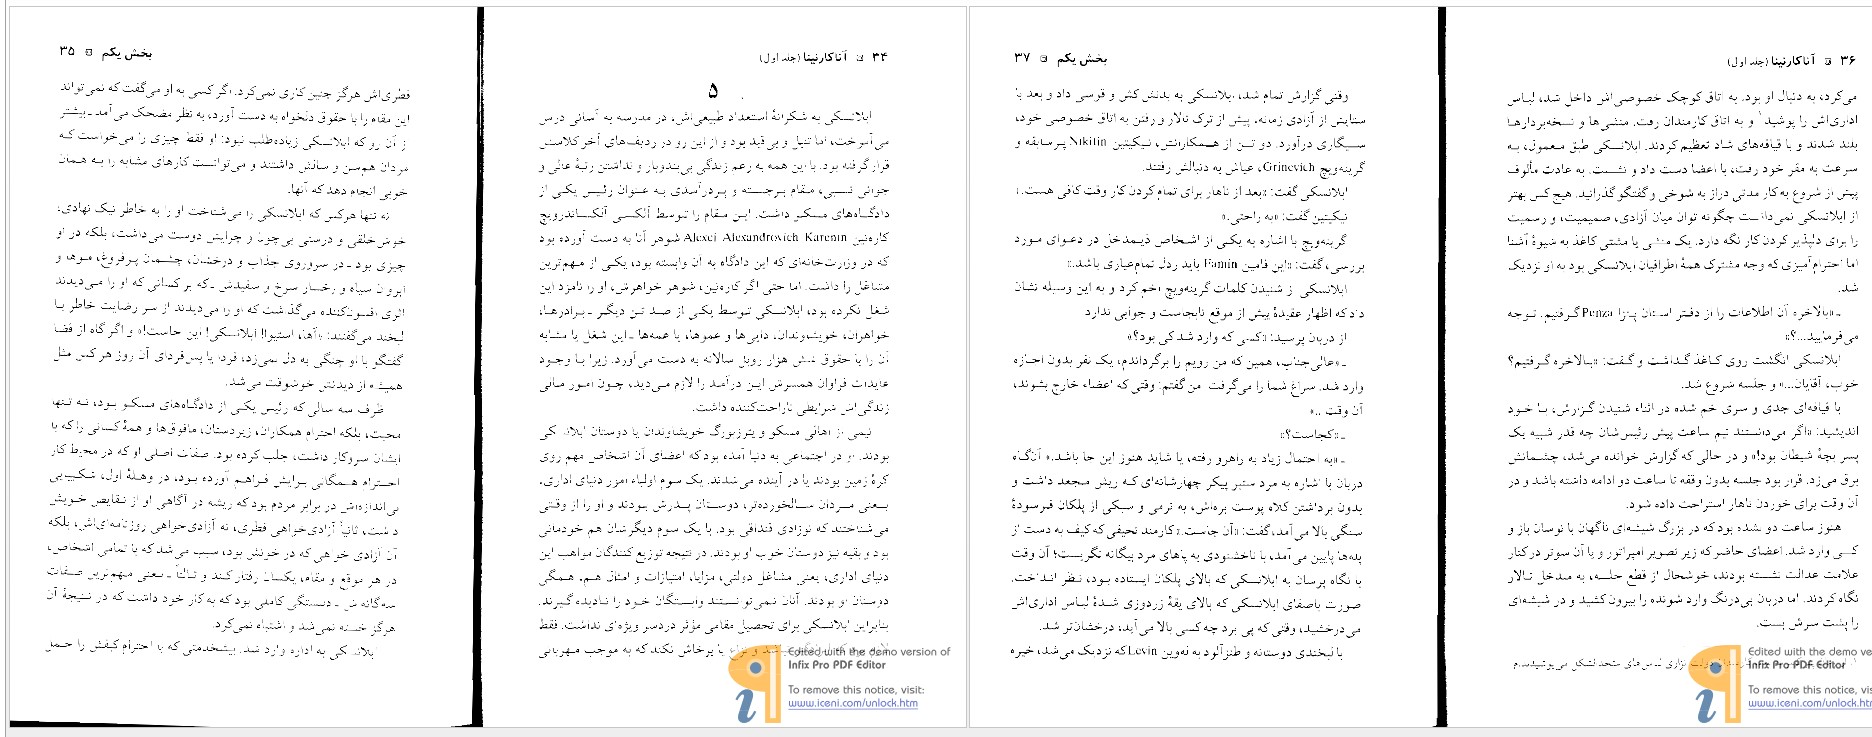 ۳۴ آناکارنینا (جلد اول)
۵
ابلانسکی به شکرانهٔ استعداد طبیعی‌اش، در مدرسه به آسانی درس
می‌آموخت، اما تنبل و بی‌قید بود و از این رو در ردیف‌های آخر کلاسش
قرار گرفته بود. با این همه به رغم زندگی بی‌بندوبار و نداشتن رتبهٔ عالی و
جوانی نسبی، مقام برجسته و پردرآمدی به عنوان رئیس یکی از
دادگاه‌های مسکو داشت. این مقام را توسط آلکسی آلکساندرویچ
کاره‌نین Alexei Alexandrovich Karenin شوهر آنا به دست آورده بود
که در وزارت‌خانه‌ای که این دادگاه به آن وابسته بود، یکی از مهم‌ترین
مشاغل را داشت. اما حتی اگر کاره‌نین، شوهر خواهرش، او را نامزد این
شغل نکرده بود، ابلانسکی توسط یکی از صد تن دیگر ـ برادرها،
خواهران، خویشوندان، دایی‌ها و عموها، یا عمه‌ها ـ این شغل یا مشابه
آن را با حقوق شش هزار روبل سالانه به دست می‌آورد. زیرا با وجود
عایدات فراوان همسرش این درآمد را لازم می‌دید، چون امور مالی
زندگی‌اش شرایطی ناراحت‌کننده داشت.
نیمی از اهالی مسکو و پترزبورگ خویشاوندان یا دوستان ابلانسکی
بودند. او در اجتماعی به دنیا آمده بود که اعضای آن اشخاص مهم روی
کرهٔ زمین بودند یا در آینده می‌شدند. یک سوم اولیاء امور دنیای اداری،
یعنی مردان سالخورده‌تر، دوستان پدرش بودند و او را از وقتی
می‌شناختند که نوزادی قنداقی بود. با یک سوم دیگرشان هم خودمانی
بود و بقیه نیز دوستان خوب او بودند. در نتیجه توزیع کنندگان مواهب این
دنیای اداری، یعنی مشاغل دولتی، مزایا، امتیازات و امثال هم، همگی
دوستان او بودند. آنان نمی‌توانستند وابستگان خود را نادیده گیرند.
بنابراین ابلانسکی برای تحصیل مقامی مؤثر دردسر ویژه‌ای نداشت. فقط
شد و نزاع یا پرخاش نکند که به موجب مهربانی
۳۵ بخش یکم
فطری‌اش هرگز چنین کاری نمی‌کرد. اگر کسی به او می‌گفت که نمی‌تواند
این مقام را با حقوق دلخواه به دست آورد، به نظر مضحک می‌آمد ـ بیشتر
از آن رو که ابلانسکی زیاده‌طلب نبود: او فقط چیزی را می‌خواست که
مردان هم‌سن و سالش داشتند و می‌توانست کارهای مشابه را به همان
خوبی انجام دهد که آنها.
نه تنها هرکس که ابلانسکی را می‌شناخت او را به خاطر نیک نهادی،
خوش‌خلقی و درستی بی‌چون و چرایش دوست می‌داشت، بلکه در او
چیزی بود ـ در سروروی جذاب و درخشان، چشمان پرفروغ، موها و
ابروان سیاه و رخسار سرخ و سفیدش ـ که بر کسانی که او را می‌دیدند
اثری افسون‌کننده می‌گذاشت که او را می‌دیدند از سر رضایت خاطر با
لبخند می‌گفتند: «آها، استیوا! ابلانسکی! این جاست!» و اگر گاه از قضا
گفتگو با او چنگی به دل نمی‌زد، فردا یا پس‌فردای آن روز هرکس مثل
همیشه از دیدنش خوشوقت می‌شد.
ظرف سه سالی که رئیس یکی از دادگاه‌های مسکو بود، نه تنها
محبت، بلکه احترام همکاران، زیردستان، مافوق‌ها و همهٔ کسانی را که با
ایشان سروکار داشت، جلب کرده بود. صفات اصلی او که در محیط کار
احترام همگانی برایش فراهم آورده بود، در وهلهٔ اول، شکیبایی
بی‌اندازه‌اش در برابر مردم بود که ریشه در آگاهی او از نقایص خویش
داشت، ثانیاً آزادی‌خواهی فطری، نه آزادی‌خواهی روزنامه‌ای‌اش، بلکه
آن آزادی خواهی که در خونش بود، سبب می‌شد که با تمامی اشخاص،
در هر موقع و مقام، یکسان رفتار کند و ثالثاً ـ یعنی مهم‌ترین صفات
سه‌گانه‌اش ـ دبستگی کاملی بود که به کار خود داشت که در نتیجهٔ آن
هرگز خسته نمی‌شد و اشتباه نمی‌کرد.
ابلانسکی به اداره وارد شد. پیشخدمتی که با احترام کیفش را حمل
۳۶ آناکارنینا (جلد اول)
می‌کرد، به دنبال او بود. به اتاق کوچک خصوصی‌اش داخل شد، لباس
اداری‌اش را پوشید¹ و به اتاق کارمندان رفت. منشی‌ها و نسخه‌بردارها
بلند شدند و با قیافه‌های شاد تعظیم کردند. ابلانسکی طبق معمول، به
سرعت به مقر خود رفت، با اعضا دست داد و نشست. به عادت مألوف
پیش از شروع به کار مدتی دراز به شوخی و گفتگو گذرانید. هیچ کس بهتر
از ابلانسکی نمی‌دانست چگونه توان میان آزادی، صمیمیت، و رسمیت
را برای دلپذیر کردن کار نگه دارد. یک منشی با مشتی کاغذ به شیوهٔ آشنا
اما احترام‌آمیزی که وجه مشترک همهٔ اطرافیان ابلانسکی بود به او نزدیک
شد.
ـ «بالاخره آن اطلاعات را از دفتر استان پنزا Penza گرفتیم. توجه
می‌فرمایید...؟»
ابلانسکی انگشت روی کاغذ گذاشت و گفت: «بالاخره گرفتیم؟
خوب، آقایان...» و جلسه شروع شد.
با قیافه‌ای جدی و سری خم شده در اثناء شنیدن گزارش، با خود
اندیشید: «اگر می‌دانستند نیم ساعت پیش رئیس‌شان چه قدر شبیه یک
پسر بچهٔ شیطان بود!» و در حالی که گزارش خوانده می‌شد، چشمانش
برق می‌زد. قرار بود جلسه بدون وقفه تا ساعت دو ادامه داشته باشد و در
آن وقت برای خوردن ناهار استراحت داده شود.
هنوز ساعت دو نشده بود که در بزرگ شیشه‌ای ناگهان با نوسان باز و
کسی وارد شد. اعضای حاضر که زیر تصویر امپراتور و یا آن سوتر در کنار
علامت عدالت نشسته بودند، خوشحال از قطع جلسه، به مدخل تالار
نگاه کردند. اما دربان بی‌درنگ وارد شونده را بیرون کشید و در شیشه‌ای
را پشت سرش بست.
دولت تزاری لباس‌های متحدالشکل می‌پوشیدند.م
۳۷ بخش یکم
وقتی گزارش تمام شد، ابلانسکی به بدنش کش و قوسی داد و بعد با
ستایش از آزادی زمانه، پیش از ترک تالار و رفتن به اتاق خصوصی خود،
سیگاری درآورد. دو تن از همکارانش، نیکیتین Nikitin پرسابقه و
گرینه‌ویچ Grinevich، عیاش به دنبالش رفتند.
ابلانسکی گفت: «بعد از ناهار برای تمام کردن کار وقت کافی هست.»
نیکیتین گفت: «به راحتی.»
گرینه‌ویچ با اشاره به یکی از اشخاص ذیمدخل در دعوای مورد
بررسی، گفت: «این فامین Famin باید رذل تمام‌عیاری باشد.»
ابلانسکی از شنیدن کلمات گرینه‌ویچ اخم کرد و به این وسیله نشان
داد که اظهار عقیدهٔ پیش از موقع نابجاست و جوابی ندارد.
از دربان پرسید: «کسی که وارد شد کی بود؟»
ـ «عالی‌جناب، همین که من رویم را برگرداندم، یک نفر بدون اجازه
وارد شد. سراغ شما را می‌گرفت. من گفتم: وقتی که اعضاء خارج بشوند،
آن وقت ..»
ـ «کجاست؟»
ـ «به احتمال زیاد به راهرو رفته، یا شاید هنوز این جا باشد.» آن‌گاه
دربان با اشاره به مرد ستبر پیکر چهارشانه‌ای که ریش مجعد داشت و
بدون برداشتن کلاه پوست بره‌اش، به نرمی و سبکی از پلکان فرسودهٔ
سنگی بالا می‌آمد، گفت: «آن جاست.» کارمند نحیفی که کیف به دست از
پله‌ها پایین می‌آمد، با ناخشنودی به پاهای مرد بیگانه نگریست؛ آن وقت
با نگاه پرسان به ابلانسکی که بالای پلکان ایستاده بود، نظر انداخت.
صورت باصفای ابلانسکی که بالای یقهٔ زردوزی شدهٔ لباس اداری‌اش
می‌درخشید، وقتی که پی برد چه کسی بالا می‌آید، درخشان‌تر شد.
با لبخندی دوستانه و طنزآلود به له‌وین Levin که نزدیک می‌شد، خیره
Edited with the demo version of
Infix Pro PDF Editor
To remove this notice, visit:
www.iceni.com/unlock.htm
Edited with the demo ve
Infix Pro PDF Editor
To remove this notice, vis
www.iceni.com/unlock.htm